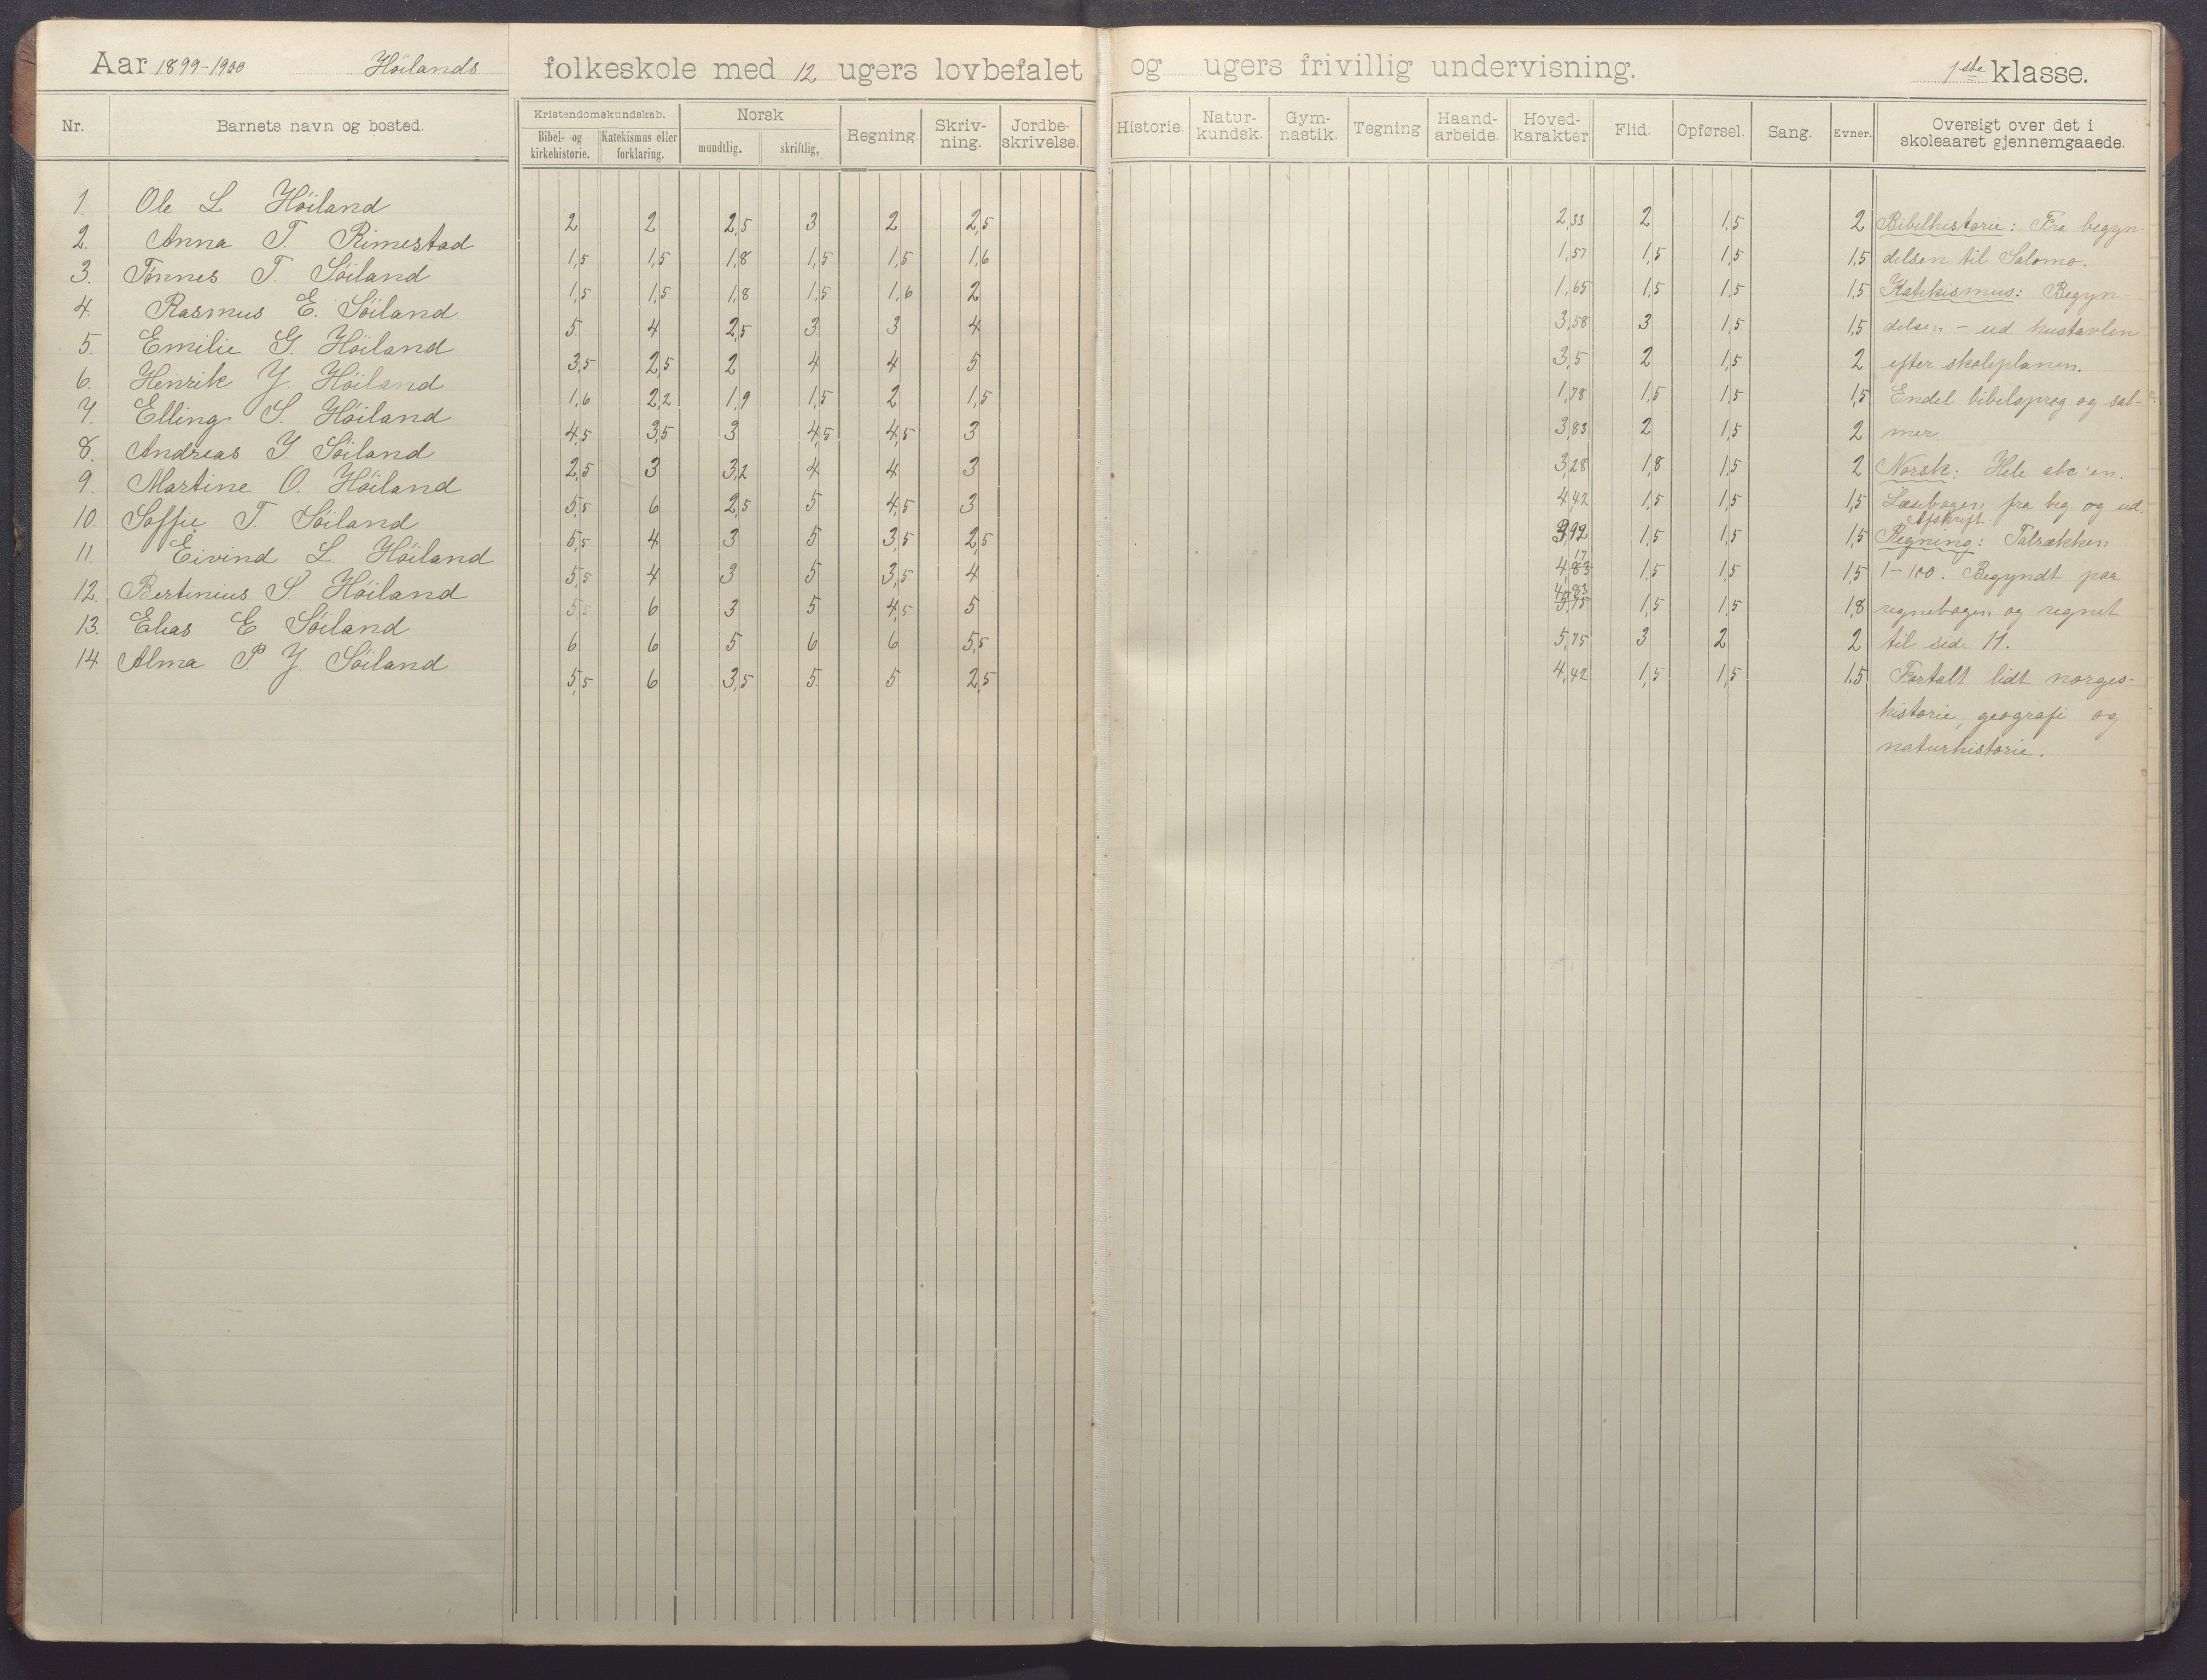 Aar 1899-1900 Höilands folkeskole med 12 ugers lovbefalet og ugers frivillig undervisning. 1ste klasse.
Nr. Barnets navn og bosted. Kristendomskundskab. Bibel- og kirkehistorie. Katekismus eller forklaring. Norsk mundtlig. skriftlig, Regning. Skriv-ning. Jordbe-skrivelse. Historie. Natur-kundsk. Gym-nastik. Tegning. Haand-arbeide. Hoved-karakter Flid. Opførsel. Sang. Evner. Oversigt over det i skoleaaret gjennemgaaede.
1. Ole L Höiland 2 2 2,5 3 2 2,5 2,33 2 1,5 2 Bibelhistorie: Fra begyn-
2. Anna T. Rimestad 1,5 1,5 1,8 1,5 1,5 1,6 1,57 1,5 1,5 1,5 delsen til Salomo.
3. Tönnes T. Söiland 1,5 1,5 1,8 1,5 1,6 2 1,65 1,5 1,5 1,5 Katekismus: Begyn-
4. Rasmus E. Söiland 5 4 2,5 3 3 4 3,58 3 1,5 1,5 delsen - ud hustavlen
5. Emilie G. Höiland 3,5 2,5 2 4 4 5 3,5 2 1,5 2 efter skoleplanen.
6. Henrik J. Höiland 1,6 2,2 1,9 1,5 2 1,5 1,78 1,5 1,5 1,5 Endel bibelsprog og sal-
7. Elling S. Höiland 4,5 3,5 3 4,5 4,5 3 3,83 2 1,5 2 mer.
8. Andreas J. Söiland 2,5 3 3,2 4 4 3 3,28 1,8 1,5 2 Norsk: Hele abc'en.
9. Martine O. Höiland 5,5 6 2,5 5 4,5 3 4,42 1,5 1,5 1,5 Læsebogen fra beg og ud.
Afskrift.
10. Soffie T. Söiland 5,5 4 3 5 3,5 2,5 3,92 1,5 1,5 1,5 Regning: Talrækken
11. Eivind L. Höiland 5,5 4 3 5 3,5 4 4,83 17 1,5 1,5 1,5 1-100. Begyndt paa
12. Bertinius S Höiland 5,5 6 3 5 4,5 5 4,83 5,75 1,5 1,5 1,8 regnebogen og regnet
13. Elias E Söiland 6 6 5 6 6 5,5 5,75 3 2 2 til side 11.
14 Alma P. J. Söiland 5,5 6 3,5 5 5 2,5 4,42 1,5 1,5 1.5 Fortalt lidt norges-
historie, geografi og
naturhistorie.